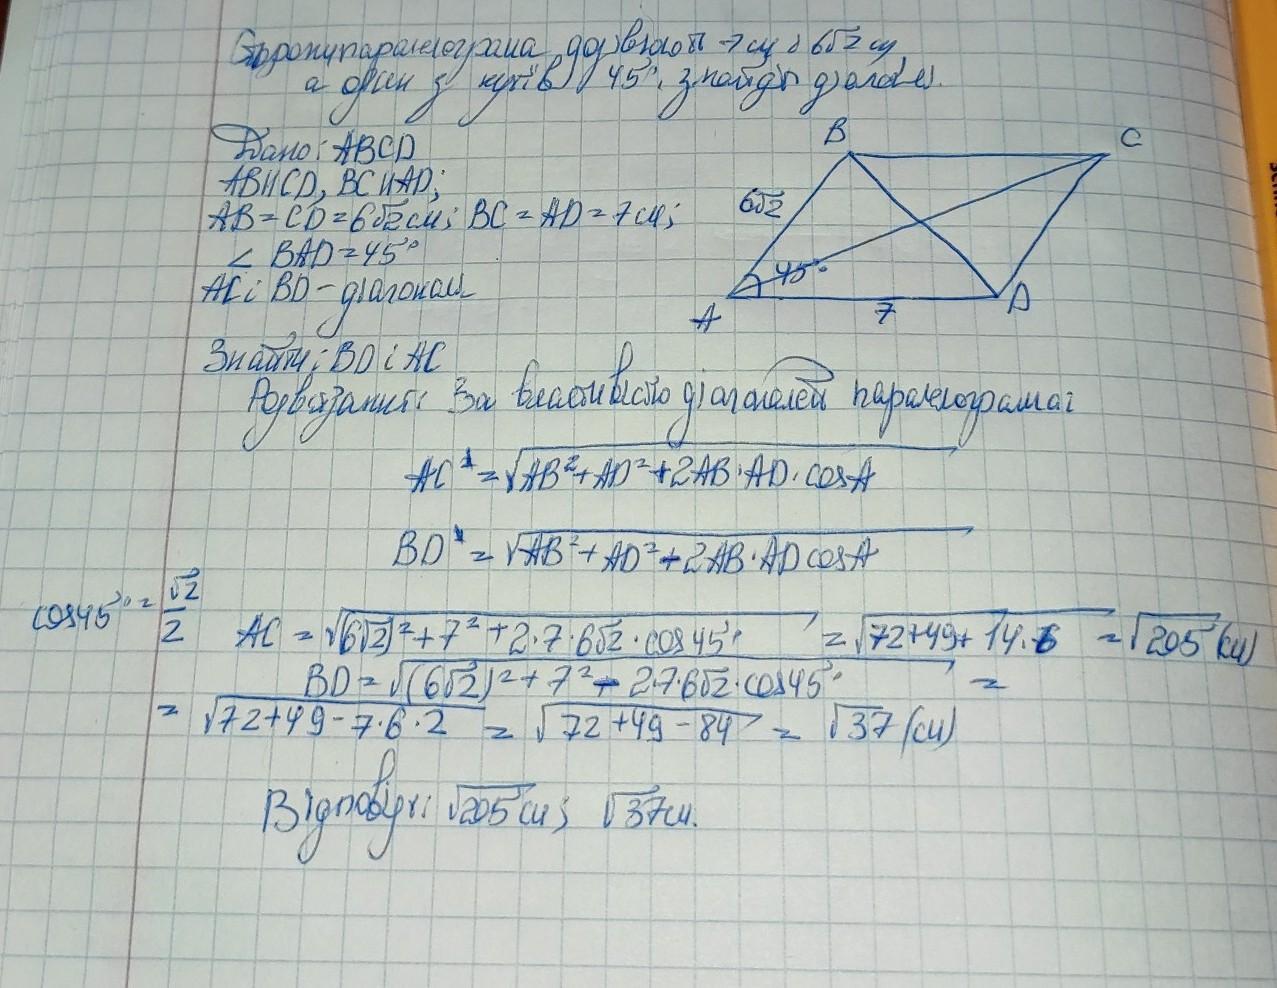 Сторони паралелограма дорівнюють 7 см і 6√2 см,
а один з кутів 45°. Знайдіть діагоналі.
Дано: ABCD
AB||CD, BC||AD;
AB=CD=6√2 см; BC=AD=7см;
∠ BAD=45°
AC і BD - діагоналі
B
C
6√2
45°
A
7
D
Знайти: BD і AC
Розв'язання: За властивістю діагоналей паралелограма:
AC = √AB²+AD²+2AB·AD·cosA
BD = √AB²+AD²-2AB·AD cosA
cos45° = √2/2
AC = √(6√2)²+7²+2·7·6√2·cos45° = √72+49+14·6 = √205 (см)
BD = √(6√2)²+7²-2·7·6√2·cos45° =
= √72+49-7·6·2 = √72+49-84 = √37 (см)
Відповідь: √205 см; √37см.